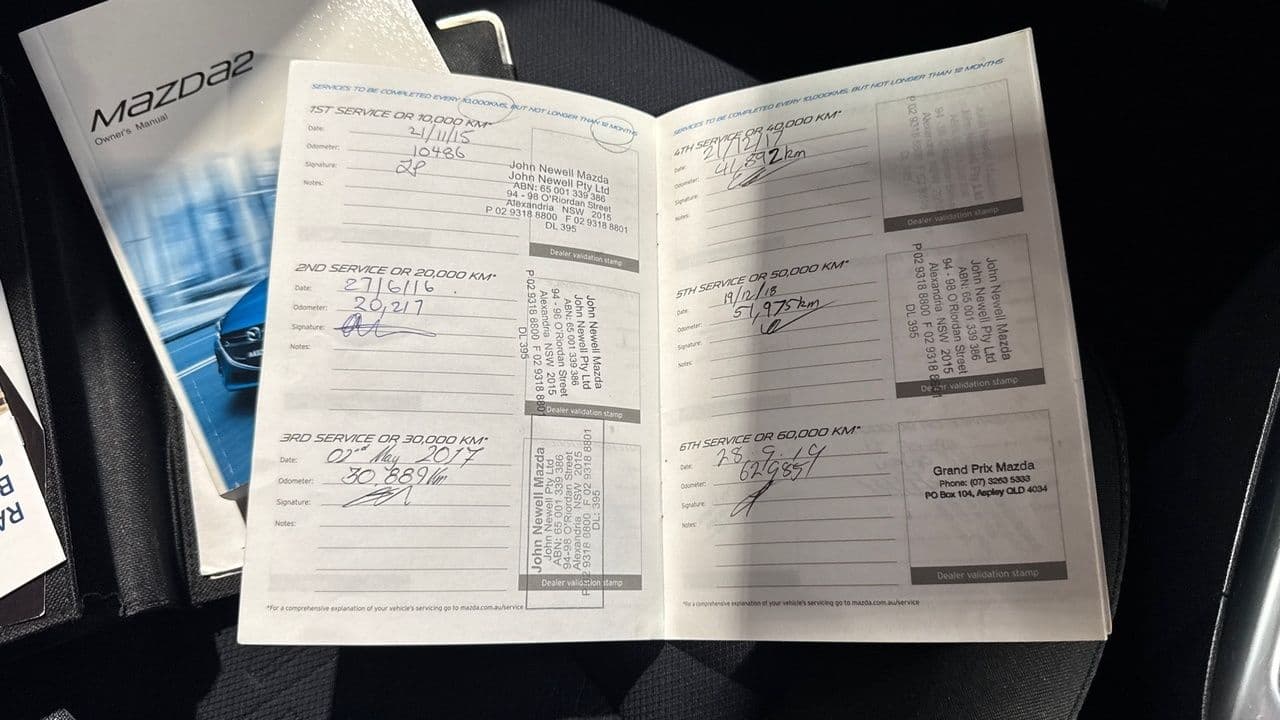 mazda2
Owner's Manual
SERVICES TO BE COMPLETED EVERY 10,000KMS, BUT NOT LONGER THAN 12 MONTHS
1ST SERVICE OR 10,000 KM*
Date: 21/11/15
Odometer: 10486
Signature:
Notes:
John Newell Mazda
John Newell Pty Ltd
ABN: 65 001 339 386
94 - 98 O'Riordan Street
Alexandria NSW 2015
P 02 9318 8800 F 02 9318 8801
DL 395
Dealer validation stamp
2ND SERVICE OR 20,000 KM*
Date: 27/6/16
Odometer: 20,217
Signature:
Notes:
John Newell Mazda
John Newell Pty Ltd
ABN: 65 001 339 386
94 - 98 O'Riordan Street
Alexandria NSW 2015
P 02 9318 8800 F 02 9318 8801
DL 395
Dealer validation stamp
3RD SERVICE OR 30,000 KM*
Date: 02nd May 2017
Odometer: 30,889km
Signature:
Notes:
John Newell Mazda
John Newell Pty Ltd
ABN: 65 001 339 386
94-98 O'Riordan Street
Alexandria NSW 2015
P 02 9318 8800 F 02 9318 8801
DL: 395
Dealer validation stamp
*For a comprehensive explanation of your vehicle's servicing go to mazda.com.au/service
SERVICES TO BE COMPLETED EVERY 10,000KMS, BUT NOT LONGER THAN 12 MONTHS
4TH SERVICE OR 40,000 KM*
Date: 21/12/17
Odometer: 41,892km
Signature:
Notes:
Dealer validation stamp
5TH SERVICE OR 50,000 KM*
Date: 19/12/18
Odometer: 51,975km
Signature:
Notes:
John Newell Mazda
John Newell Pty Ltd
ABN: 65 001 339 386
94 - 98 O'Riordan Street
Alexandria NSW 2015
P 02 9318 8800 F 02 9318 8801
DL 395
Dealer validation stamp
6TH SERVICE OR 60,000 KM*
Date: 28.9.19
Odometer: 62985
Signature:
Notes:
Grand Prix Mazda
Phone: (07) 3263 5333
PO Box 104, Aspley QLD 4034
Dealer validation stamp
*For a comprehensive explanation of your vehicle's servicing go to mazda.com.au/service